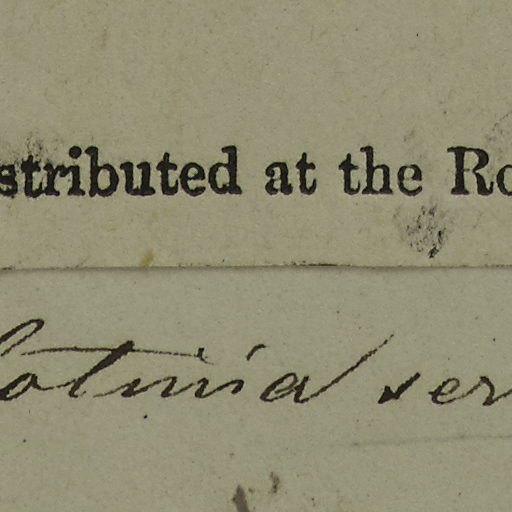 stributed at the Ro
otinia ser